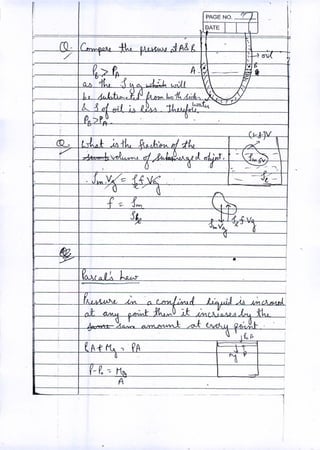 PAGE NO.
DATE
Q. Compare the pressure at A & B.
→ oil
A
B
P_B > P_A
as the ρyg which will
be subtracted from both side
& ρ of oil is less. Therefore,
water
P_B > P_A
Q. What is the fraction of the
volume of submerged object.
(1-f)V
ρm V g = ρl f V g
f = ρm
ρl
ρm V g
ρl f V g
Pascal's Law
Pressure in a confined liquid is incresed
at any point then it increases by the
same amount at every point
P₀A + Mg = PA
P-P₀ = Mg
A
P₀A
Mg
P